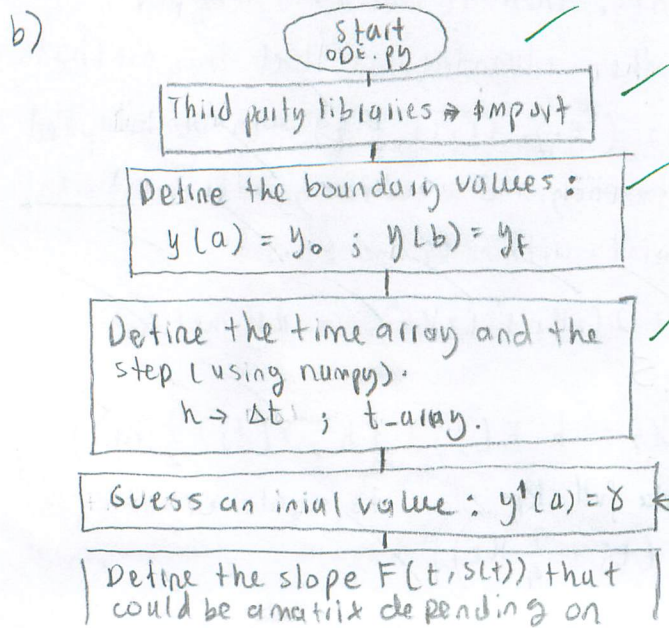 b)
Start
ODE.py
Third party libraries → Import
Define the boundary values:
y(a) = y₀ ; y(b) = yf
Define the time array and the
step (using numpy).
h → Δt ; t_array.
Guess an inial value: y'(a) = γ
Define the slope F(t, S(t)) that
could be a matrix depending on